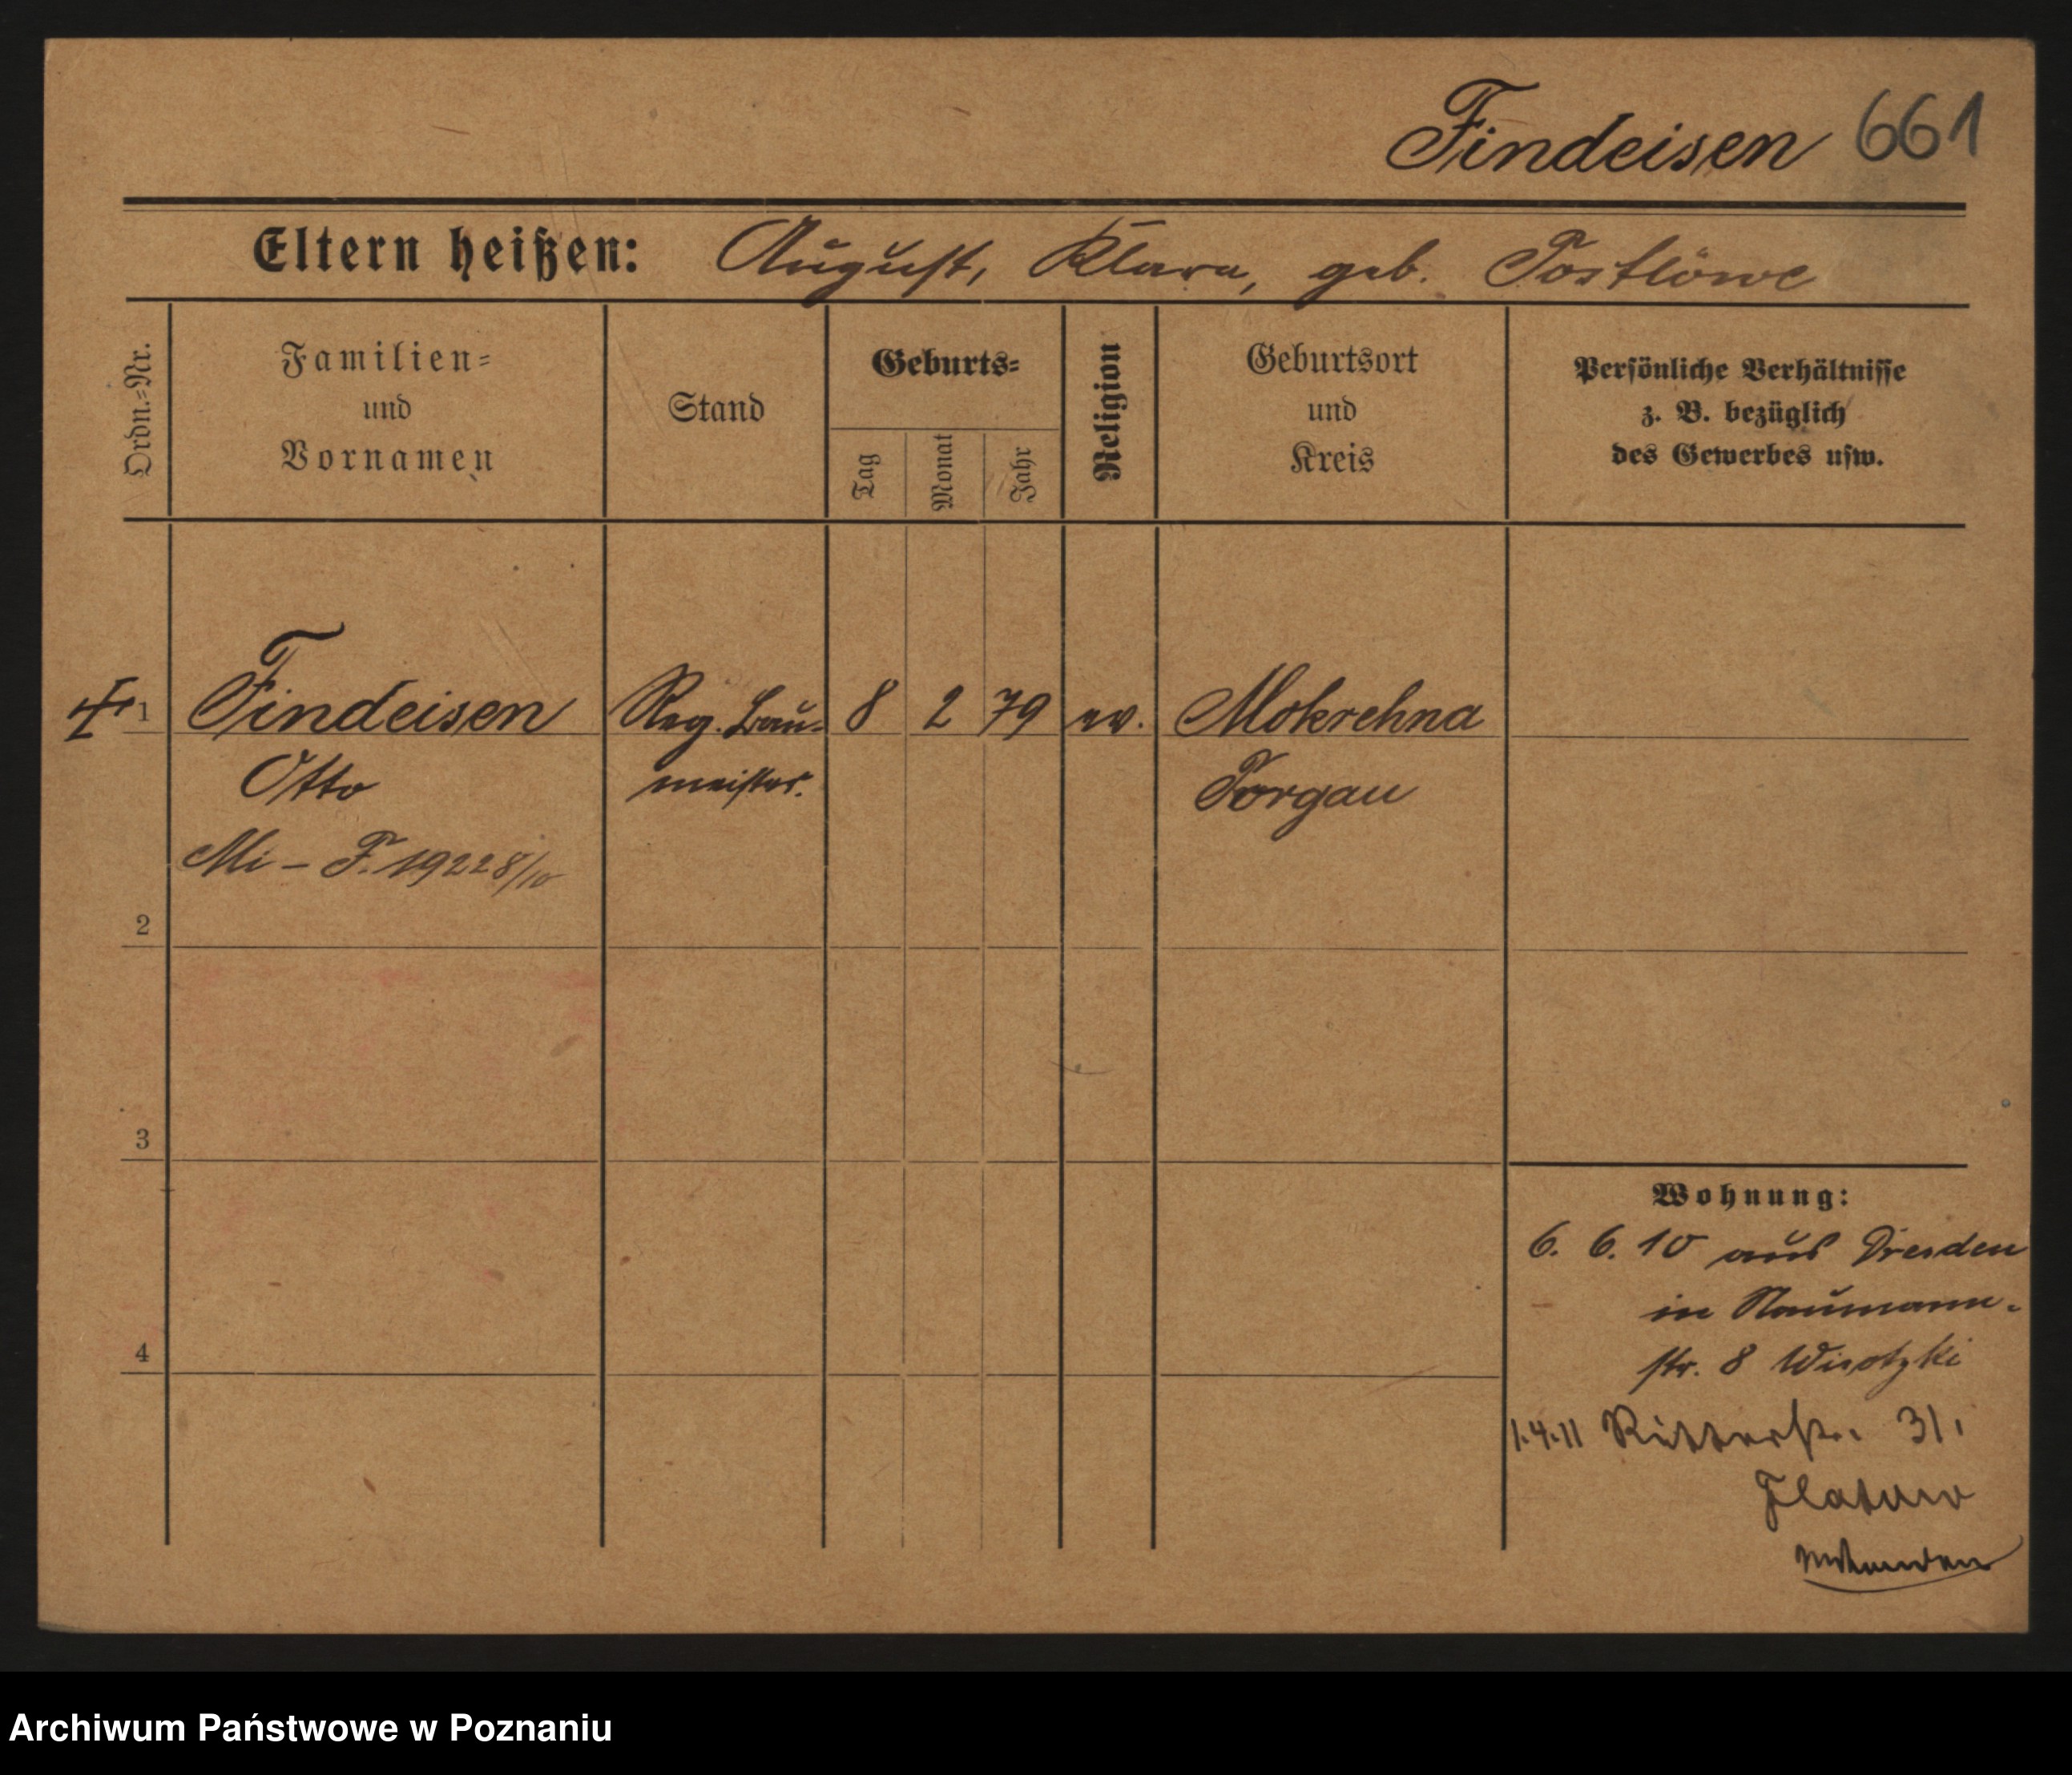 Findeisen 661
Eltern heißen: August, Klara, geb. Postlöwe
Ordn.-Nr.
Familien-
und
Vornamen
Stand
Geburts-
Tag
Monat
Jahr
Religion
Geburtsort
und
Kreis
Persönliche Verhältnisse
z. B. bezüglich
des Gewerbes usw.
1 Findeisen Reg. Bau- 8 2 79 ev. Mokrehna
Otto meister. Torgau
Mi – F. 1922 8/10
2
3
4
Wohnung:
6. 6. 10 aus Dresden
in Naumann-
str. 8 Wisotzki
1.4.11 Ritterstr. 31,
Flatow